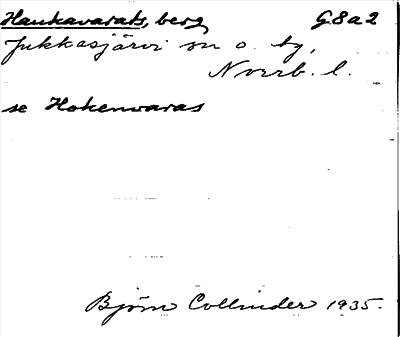 Haukavarats, berg G8a2
Jukkasjärvi sn o. tg,
Norrb. l.
se Hokenvaras
Björn Collinder 1935.